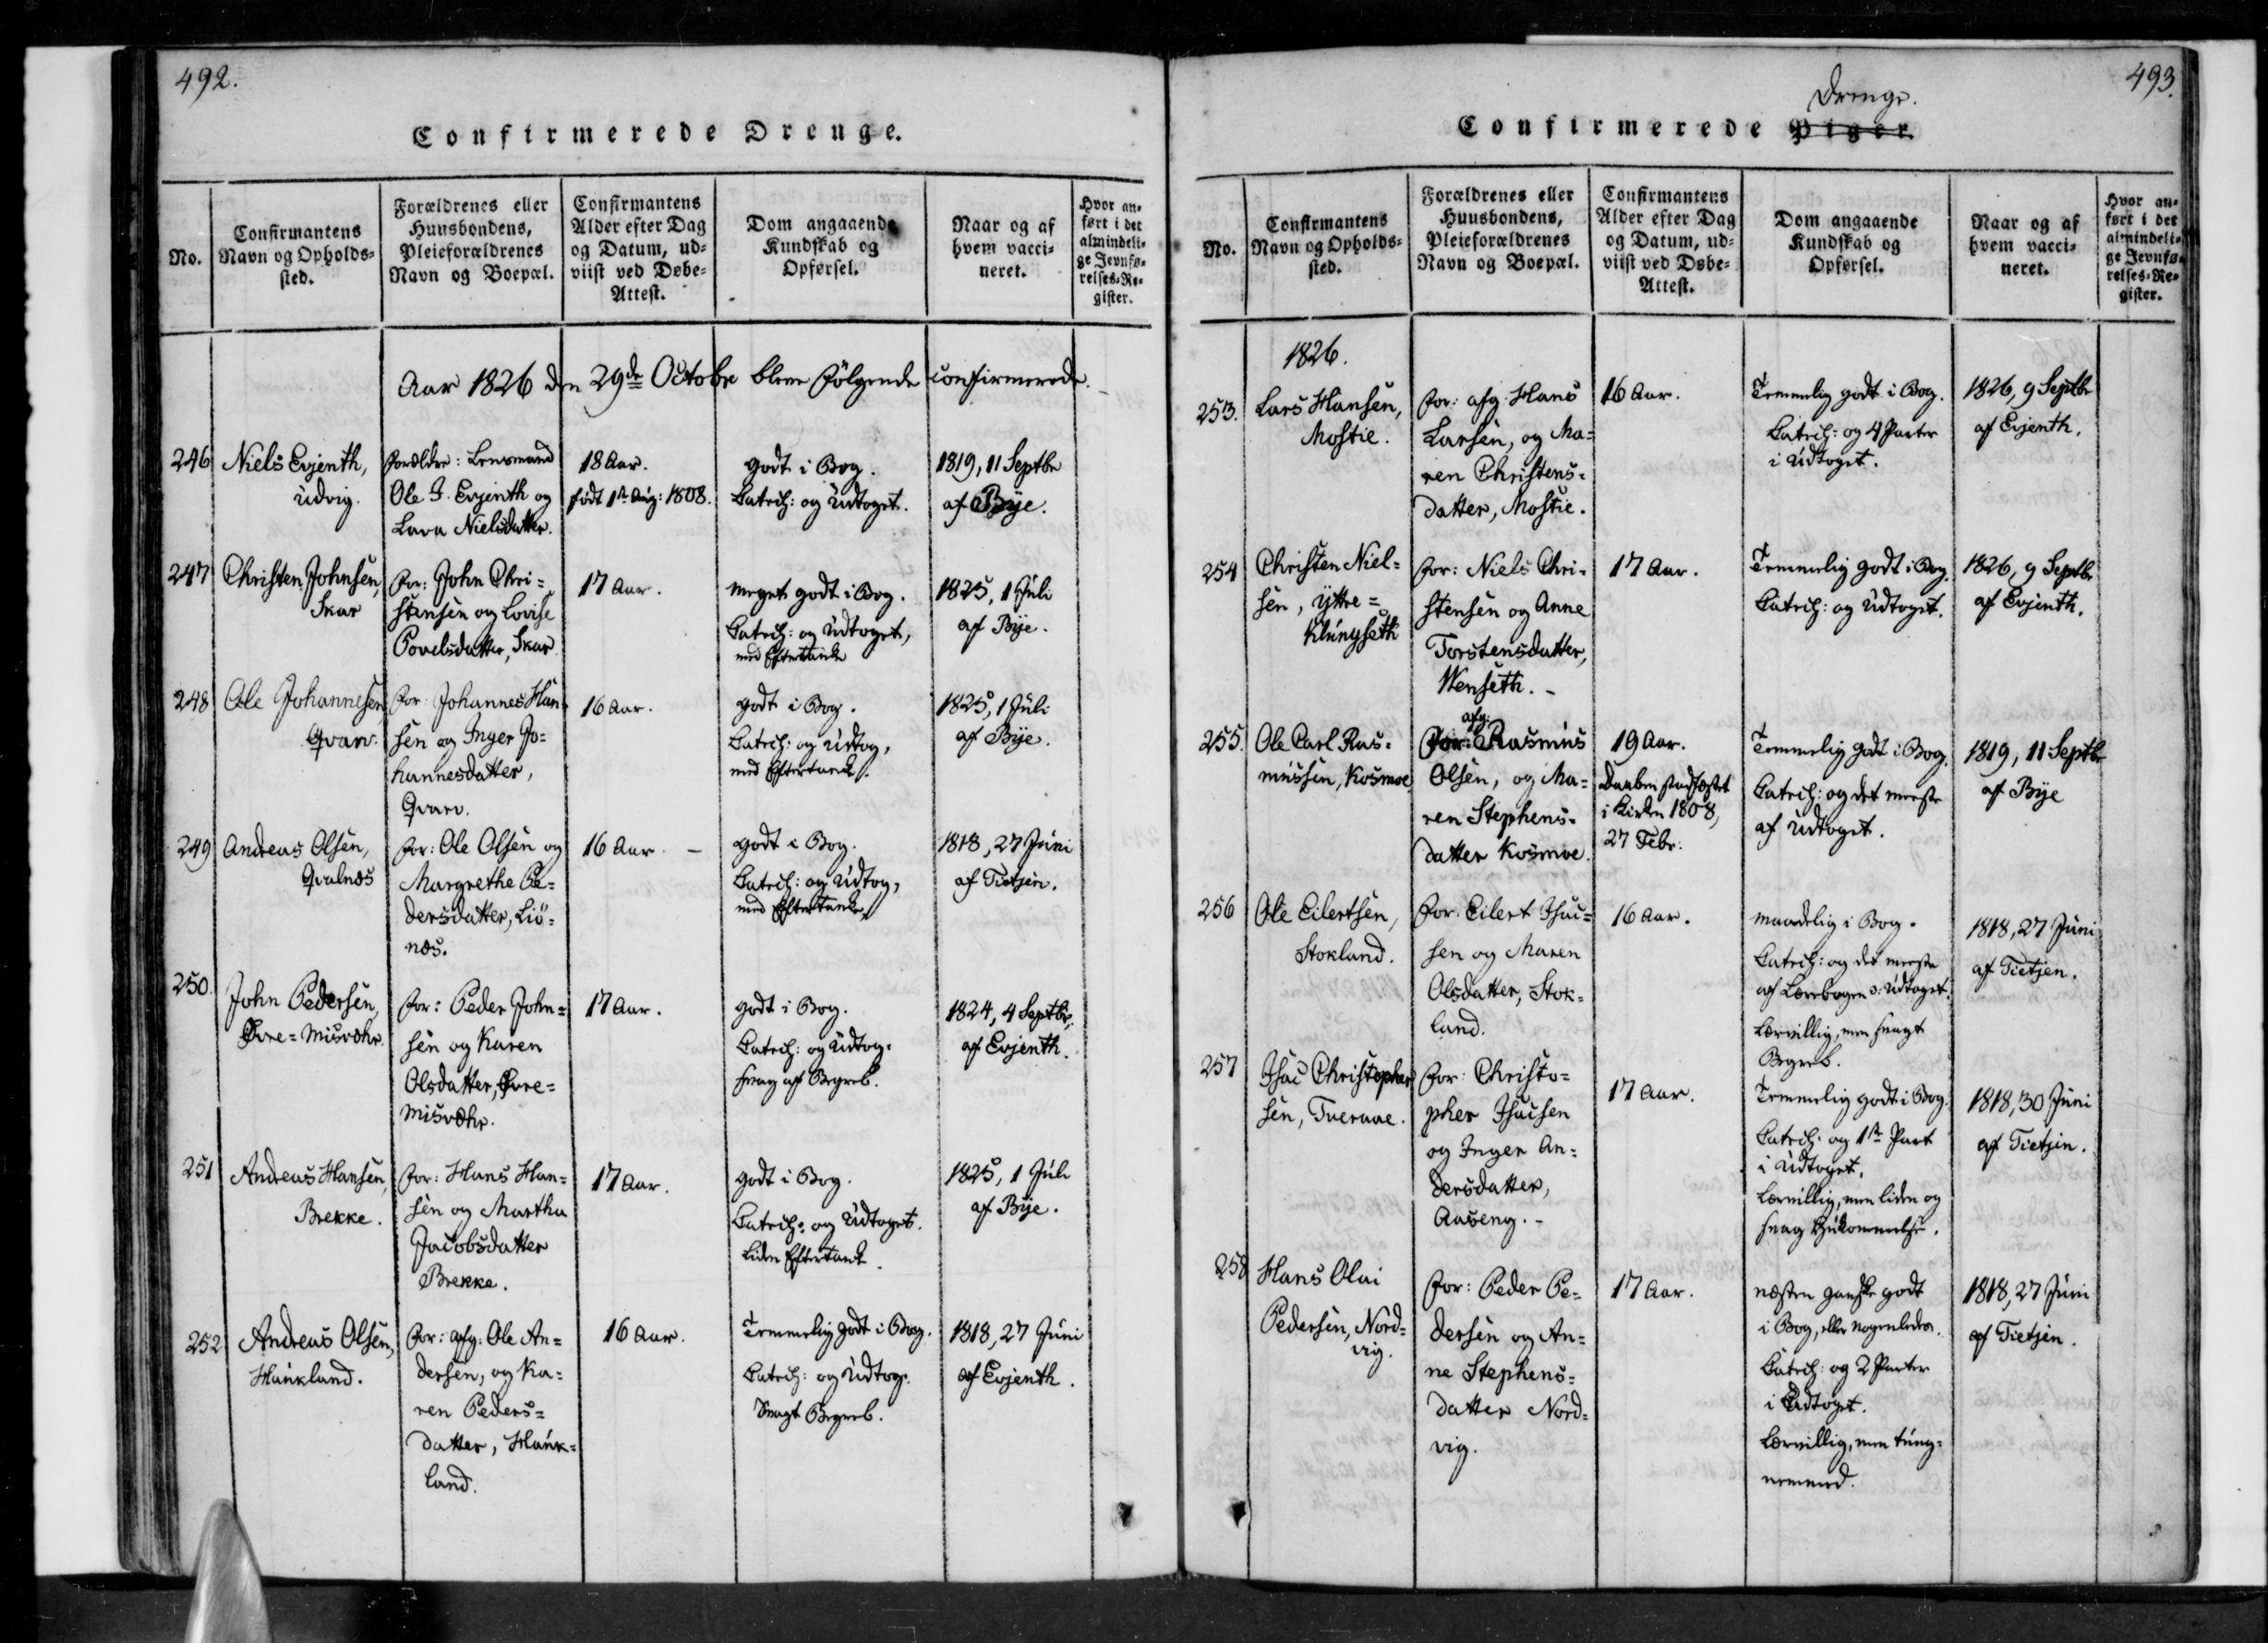 492.
Confirmerede Drenge.
No.
Confirmantens
Navn og Opholds-
sted.
Forældrenes eller
Huusbondens,
Pleieforældrenes
Navn og Boepæl.
Confirmantens
Alder efter Dag
og Datum, ud-
viist ved Døbe-
Attest.
Dom angaaende
Kundskab og
Opførsel.
Naar og af
hvem vacci-
neret.
Hvor an-
ført i det
almindeli-
ge Jevnfø-
relses-Re-
gister.
Aar 1826 den 29de Octobr bleve følgende confirmerede.
246
Niels Evjenth,
Udvig.
Forældre: Lensmand
Ole J. Evjenth og
Lava Nielsdatter.
18 Aar.
født 1ste Aug: 1808.
Godt i Bog.
Catech: og Udtoget.
1819, 11 Septbr
af Bye.
247
Christen Johnsen,
Skar
For: John Chri=
stensen og Lovise
Povelsdatter, Skar
17 Aar.
meget godt i Bog.
Catech: og Udtoget,
med Eftertanke
1825, 1 Juli
af Bye.
248
Ole Johannesen
Qvarv.
For: Johannes Han=
sen og Inger Jo=
hannesdatter,
Qvarv.
16 Aar.
godt i Bog.
Catech: og Udtog,
med Eftertanke.
1825, 1 Juli
af Bye.
249
Andreas Olsen,
Qvalnæs
For: Ole Olsen og
Margrethe Pe=
dersdatter, Liø=
næs.
16 Aar. –
godt i Bog.
Catech: og Udtog,
med Eftertanke,
1818, 27 Juni
af Tietjen.
250.
John Pedersen,
Øvre=Misvær.
For: Peder John=
sen og Karen
Olsdatter, Øvre=
Misvær.
17 Aar.
godt i Bog.
Catech: og Udtog.
svag af Begreb.
1824, 4 Septbr,
af Evjenth.
251
Andreas Hansen,
Brekke.
For: Hans Han=
sen og Martha
Jacobsdatter
Brekke.
17 Aar.
godt i Bog.
Catech: og Udtoget.
Liden Eftertank.
1825, 1 Juli
af Bye.
252
Andreas Olsen,
Haukland.
For: afg: Ole An=
dersen, og Ka=
ren Peders=
datter, Hauk=
land.
16 Aar.
Temmelig godt i Bog.
Catech: og Udtog.
Svagt Begreb.
1818, 27 Juni
af Evjenth.
493.
Drenge.
Confirmerede Piger.
No.
Confirmantens
Navn og Opholds-
sted.
Forældrenes eller
Huusbondens,
Pleieforældrenes
Navn og Boepæl.
Confirmantens
Alder efter Dag
og Datum, ud-
viist ved Døbe-
Attest.
Dom angaaende
Kundskab og
Opførsel.
Naar og af
hvem vacci-
neret.
Hvor an-
ført i det
almindeli-
ge Jevnfø-
relses-Re-
gister.
1826.
253.
Lars Hansen,
Mostie.
For: afg: Hans
Larsen, og Ma=
ren Christens=
datter, Mostie.
16 Aar.
Temmelig godt i Bog.
Catech: og 4 Parter
i Udtoget.
1826, 9 Septbr
af Evjenth.
254
Christen Niel=
sen, Yttre=
Klungseth
For: Niels Chri=
stensen og Anne
Torstensdatter,
Wenseth. –
17 Aar.
Temmelig godt i Bog.
Catech: og Udtoget.
1826, 9 Septbr
af Evjenth.
255.
Ole Carl Ras=
mussen, Kosmoe
afg:
For: Rasmus
Olsen, og Ma=
ren Stephens=
datter Kosmoe.
19 Aar.
Daaben stadfæstet
i Kirken 1808,
27 Febr.
Temmelig godt i Bog.
Catech: og det meeste
af Udtoget.
1819, 11 Septbr
af Bye
256
Ole Eilertsen,
Stokland.
For: Eilert Isac=
sen og Maren
Olsdatter, Stok=
land.
16 Aar.
maadelig i Bog.
Catech: og det meeste
af Lærebogen o: Udtoget.
Lærvillig, men svagt
Begreb.
1818, 27 Juni
af Tietjen.
257
Isac Christopher
sen, Tveraae.
For: Christo=
pher Isacsen
og Inger An=
dersdatter,
Aaseng. –
17 Aar.
Temmelig godt i Bog.
Catech: og 1ste Part
i Udtoget.
Lærvillig, men liden og
svag Hukommelse.
1818, 30 Juni
af Tietjen.
258
Hans Olai
Pedersen, Nord=
vig.
For: Peder Pe=
dersen og An=
ne Stephens=
datter Nord=
vig.
17 Aar.
næsten ganske godt
i Bog, eller nogenledes.
Catech: og 2 Parter
i Udtoget.
Lærvillig, men tung=
nemmed.
1818, 27 Juni
af Tietjen.